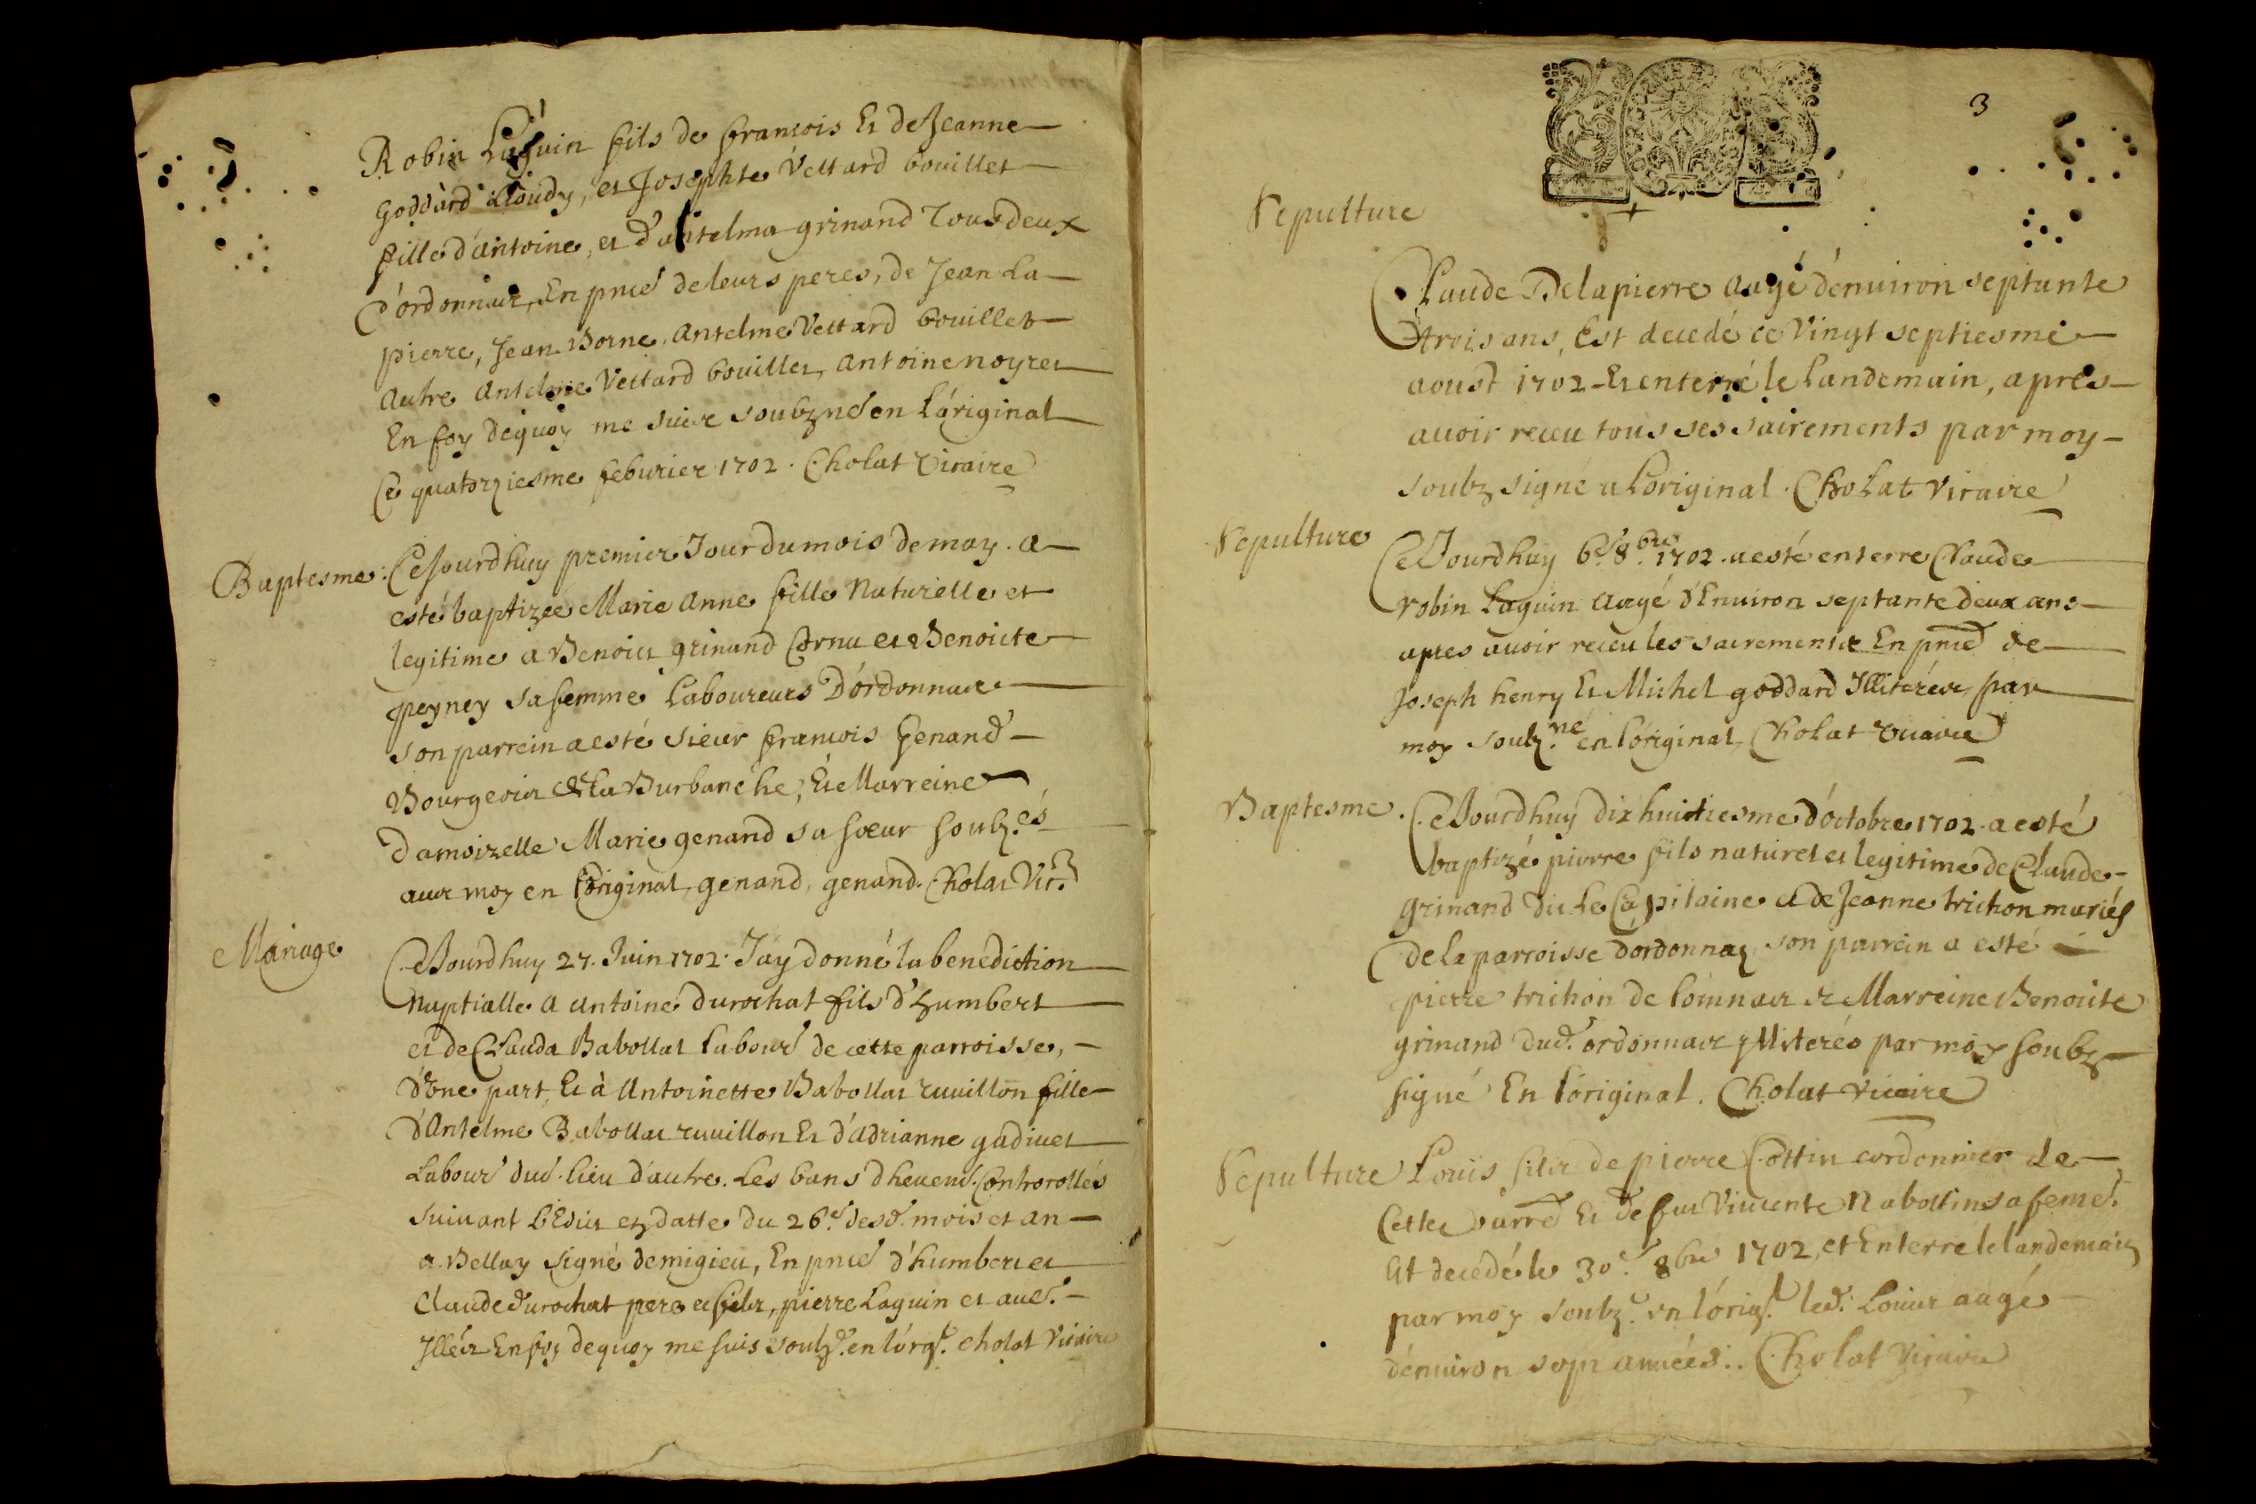 Robin Laguin fils de francois Et de Jeanne
Goddard Cloudy, et Josephte Vettard bouillet
fille d'antoine, et d'antelma grinand Tous deux
d'ordonnaz, En pnce de leurs peres, de Jean La
pierre, Jean Borne, Antelme Vettard bouillet
Autre Antelme Vettard bouillet, Antoine noyret
En foy dequoy me suis soubzné en L'original
Ce quatorziesme feburier 1702. Cholat Vicaire
Baptesme: Cejourdhuy premier Jour du mois de may. a
esté baptizée Marie Anne fille Naturelle et
legitime a Benoict grinand Cornu et Benoicte
peyney sa femme Laboureurs D'ordonnaz
son parrein a esté sieur francois Genand
Bourgeois de La Burbanche, Et Marreine
Damoizelle Marie genand sa soeur soubz.és
avec moy en l'original, genand, genand. Cholat Vic.
Mariage Cejourdhuy 27. Juin 1702. J'ay donné la benediction
Nuptialle a Antoine Durochat fils d'humbert
et de Clauda Babollat Labour de cette parroisse,
d'une part, Et à Antoinette Babollat ruuillon fille
d'Antelme Babollat ruuillon Et d'Adrianne gadiuet
Labour dud. lieu d'autre. Les bans dheuem. Controrollés
suiuant L'Edict et datte du 26.e desd. mois et an
a Bellay signé demigieu, En pnce d'humbert et
Claude durochat pere et filz, pierre Laguin et aues.
Illés En foy dequoy me suis soubz. en l'orig. Cholat Vicaire
3
Sepulture
Claude Delapierre aagé d'enuiron septante
trois ans, Est decedé ce Vingt septiesme
aoust 1702 Et enterré le Landemain, apres
auoir receu tous ses sacrements par moy
soubz signé a L'original. Cholat Vicaire
Sepulture Cejourdhuy 6.e 8.bre 1702. a esté enterre Claude
robin Laguin aagé d'Enuiron septante deux ans
apres auoir receu les sacrements Et En pnce de
Joseph henry Et Michel goddard Illiterés, par
moy soubz.né en l'original, Cholat Vicaire
Baptesme. Cejourdhuy dix huictiesme d'octobre 1702. a esté
baptizé pierre fils naturel et legitime de Claude
grinand dit Le Capitaine et de Jeanne trichon mariés
de la parroisse d'ordonnaz, son parrein a esté
pierre trichon de Lomnaz et Marreine Benoicte
grinand dud. ordonnaz Illiterés par moy soubz
signé En l'original. Cholat Vicaire
Sepulture Louïs filz de pierre Cottin cordonnier de
Et de Vincente Nabottin sa feme.
Est decedé le 30.e 8bre 1702, et Enterré le landemain
par moy soubz. en l'orig. led. Louis aagé
d'enuiron sept années. Cholat Vicaire